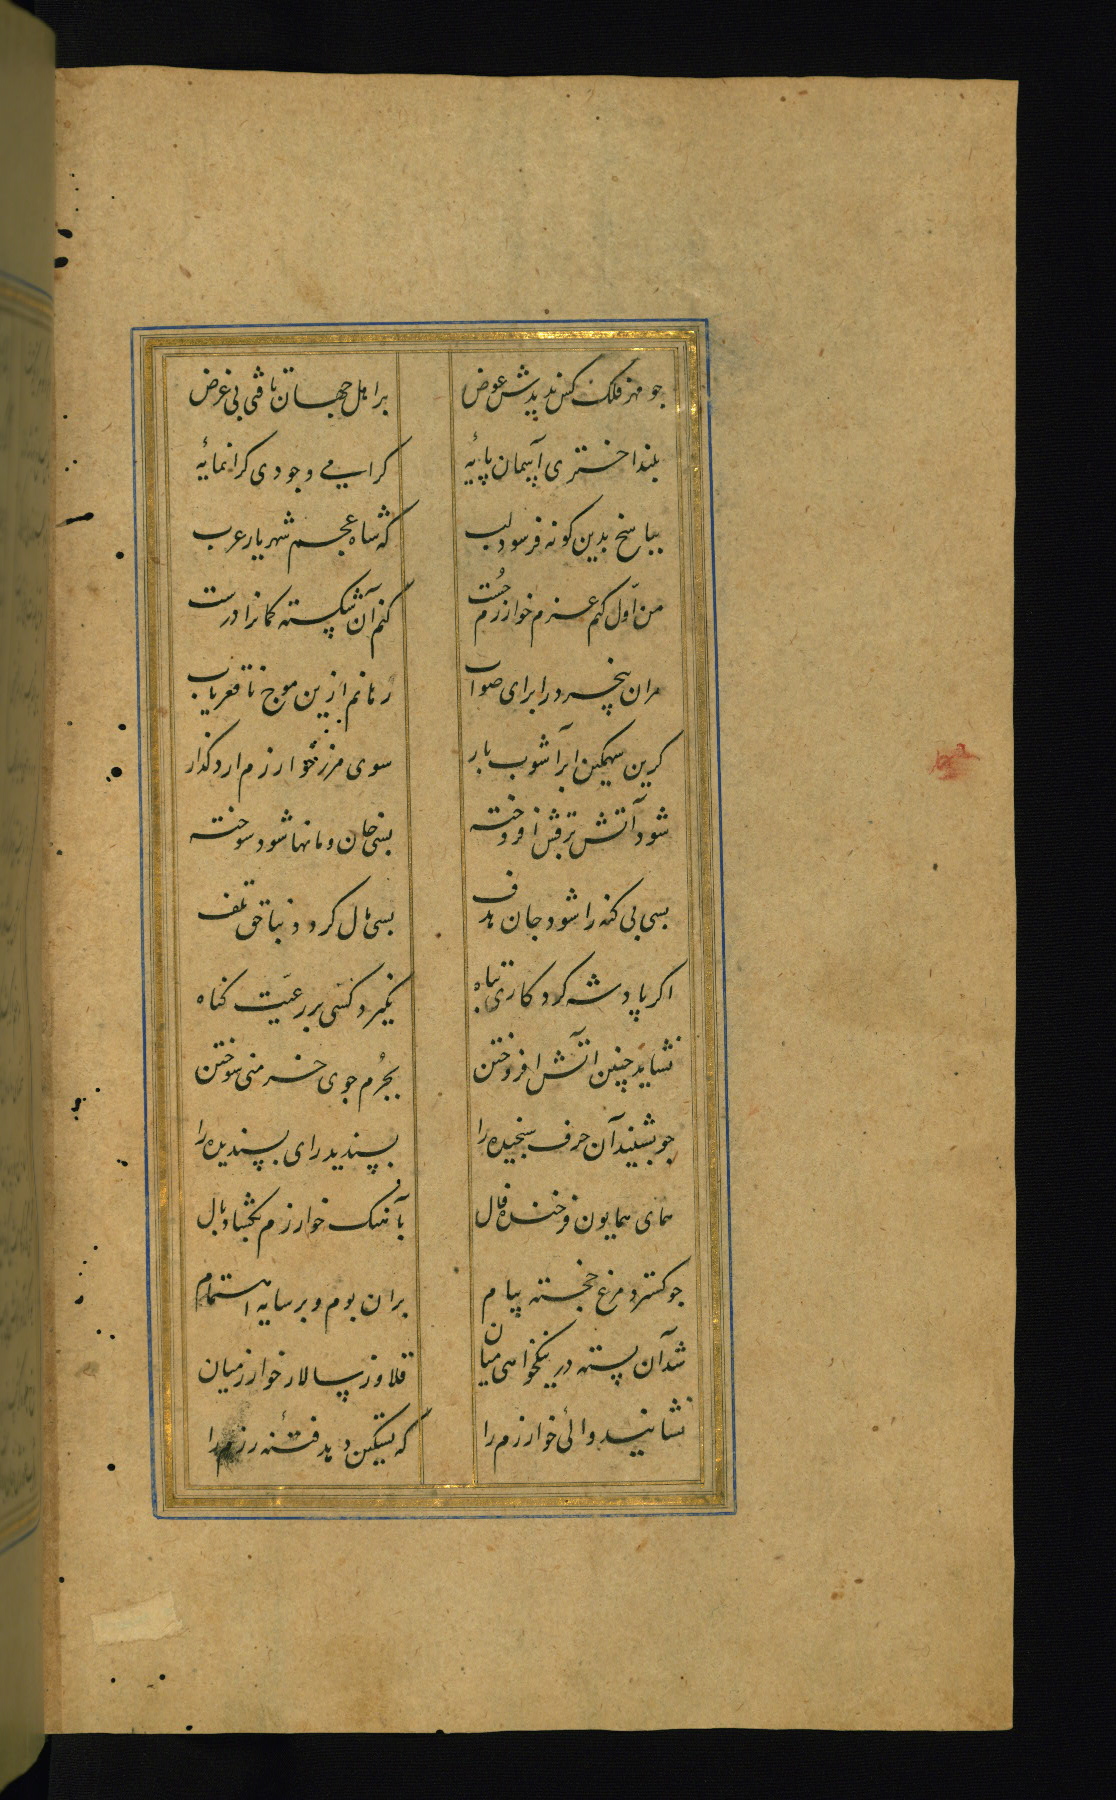 جو مهر فلک کس ندیدش عوض براهل جهان مشفقی بی غرض
بلند اختری آسمان پایهٔ کرامی وجودی کرانمایهٔ
بپاسخ بدین کونه فرسود لب که شاه عجم شهریار عرب
من اوّل کنم عزم خوارزم جُست کنم آن شکسته کمانرا درست
مران بیخرد را برای صواب رهانم ازین موج نا قعریاب
کزین سهمکین ابر آشوب بار سوی مرز خوارزم ارد کذار
شود آتش ترقش افروخته بسی خان و مانها شود سوخته
بسی بی کنه را شود جان هدف بسی مال کردد بناحق تلف
اکر پادشه کرد کاری تباه نکیرد کسی بر رعیّت کناه
نشاید چنین آتش افروختن بجُرم جوی خرمنی سوختن
جو بشنید آن حرف سنجیده را پسندید رای پسندیده را
همای همایون فرخنده فال بآهنک خوارزم بکشاد بال
جو کسترد مرغ خجسته پیام بران بوم و بر سایه اهتمام
شد آن بسته در نیکخواهی میان قلاوز سپالار خوارزمیان
نشانید والئ خوارزم را که تسکین دهد فتنهٔ رزم را